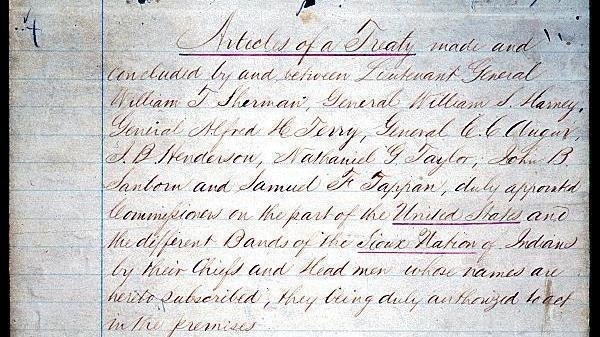 4
Articles of a Treaty made and
concluded by and between Lieutenant General
William T. Sherman, General William S. Harney,
General Alfred H. Terry, General C. C. Augur,
J. B. Henderson, Nathaniel G. Taylor, John B.
Sanborn and Samuel F. Tappan, duly appointed
Commissioners on the part of the United States and
the different Bands of the Sioux Nation of Indians
by their Chiefs and Head men whose names are
hereto subscribed, they being duly authorized to act
in the premises